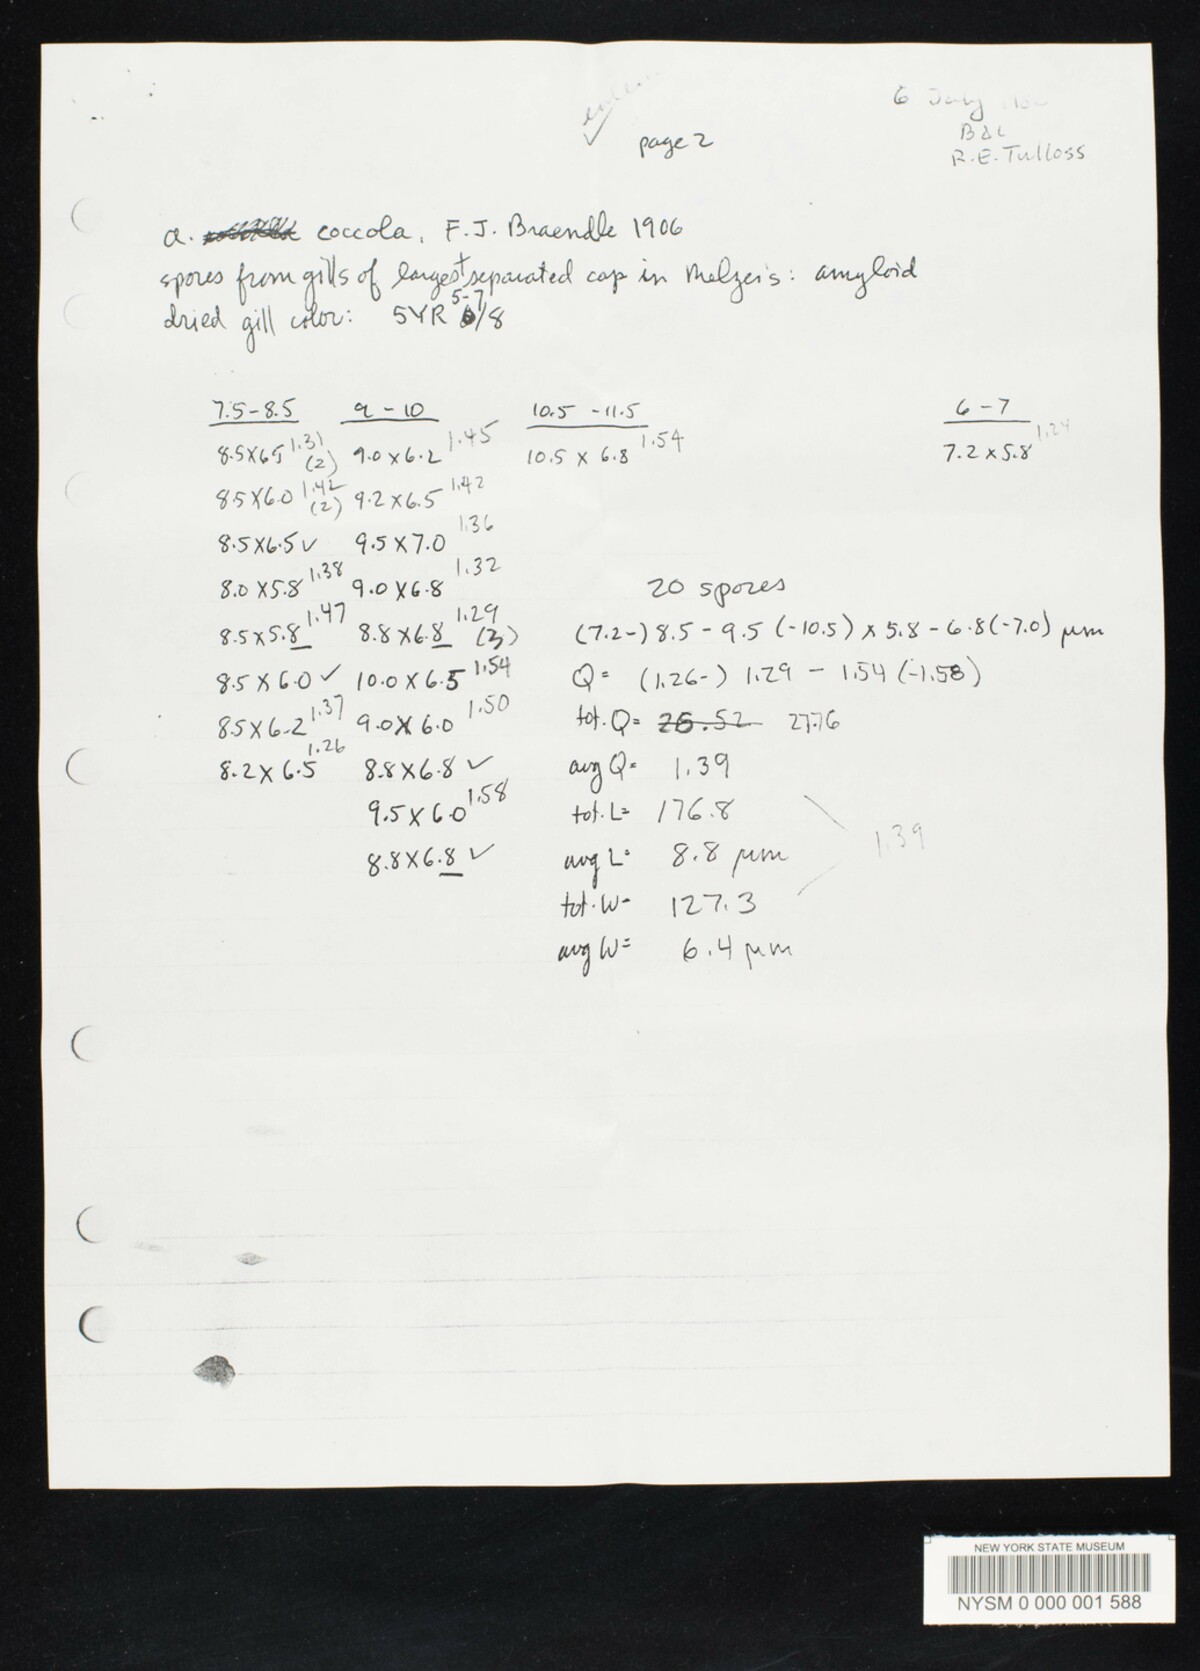 6 July
B&L
R.E. Tulloss
page 2
a. coccola, F.J. Braendle 1906
spores from gills of largest separated cap in Melzer's: amyloid
dried gill color: 5YR 5-7/8
7.5-8.5 9-10 10.5-11.5 6-7
8.5x6.5 1.31 (2) 9.0x6.2 1.45 10.5 x 6.8 1.54 7.2x5.8 1.24
8.5x6.0 1.42 (2) 9.2x6.5 1.42
8.5x6.5 ✓ 9.5x7.0 1.36
8.0x5.8 1.38 9.0x6.8 1.32
20 spores
8.5x5.8 1.47 8.8x6.8 1.29 (3) (7.2-) 8.5-9.5 (-10.5) x 5.8-6.8 (-7.0) µm
8.5x6.0 ✓ 10.0x6.5 1.54 Q= (1.26-) 1.29 - 1.54 (-1.58)
8.5x6.2 1.37 9.0x6.0 1.50 tot. Q= 26.52 27.76
8.2x6.5 1.26 8.8x6.8 ✓ avg Q= 1.39
9.5x6.0 1.58 tot. L= 176.8
1.39
8.8x6.8 ✓ avg L= 8.8 µm
tot. W= 127.3
avg W= 6.4 µm
NEW YORK STATE MUSEUM
NYSM 0 000 001 588